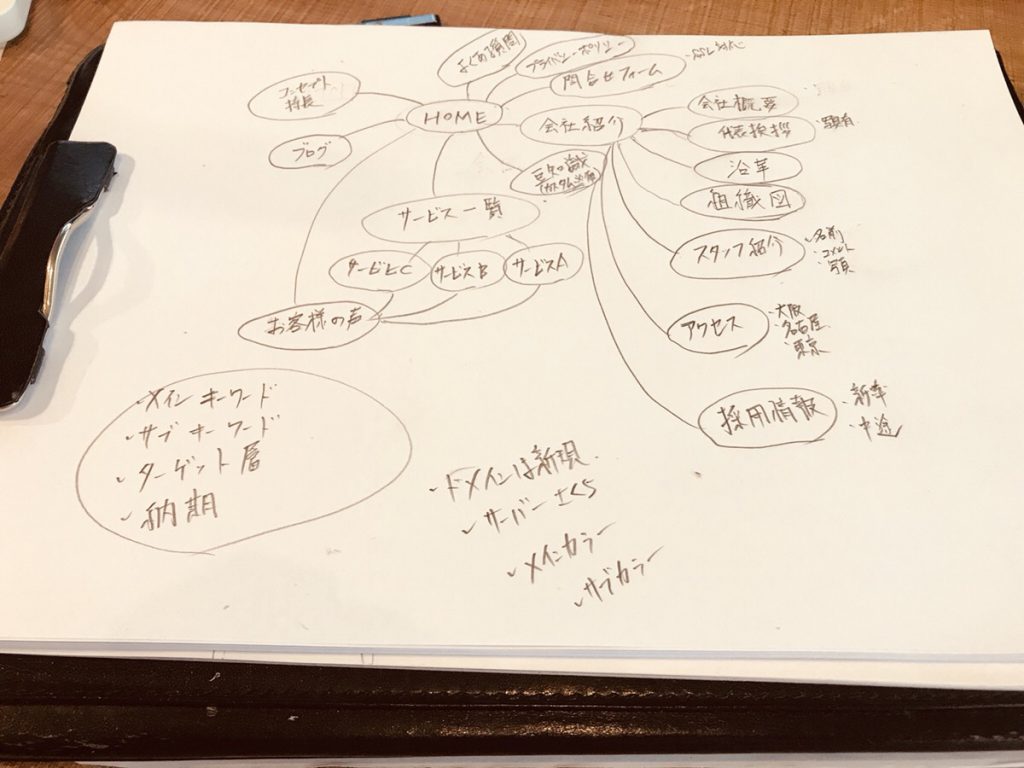 よくある質問
プライバシーポリシー
問合せフォーム
・SSL対応
コンセプト
特長
HOME
会社紹介
会社概要
代表挨拶
・顔有
ブログ
豆知識
カスタム投稿
沿革
組織図
サービス一覧
スタッフ紹介
・名前
・コメント
・写真
サービスC
サービスB
サービスA
お客様の声
アクセス
・大阪
・名古屋
・東京
採用情報
・新卒
・中途
・メインキーワード
・サブキーワード
・ターゲット層
・納期
・ドメインは新規
・サーバーさくら
・メインカラー
・サブカラー